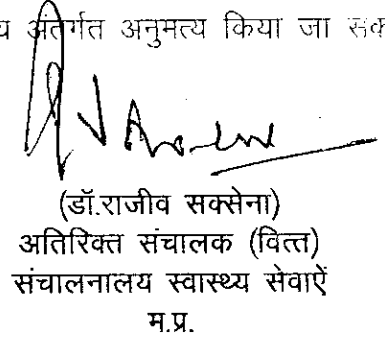 अंतर्गत अनुमत्य किया जा
(डॉ.राजीव सक्सेना)
अतिरिक्त संचालक (वित्त)
संचालनालय स्वास्थ्य सेवाऐं
म.प्र.